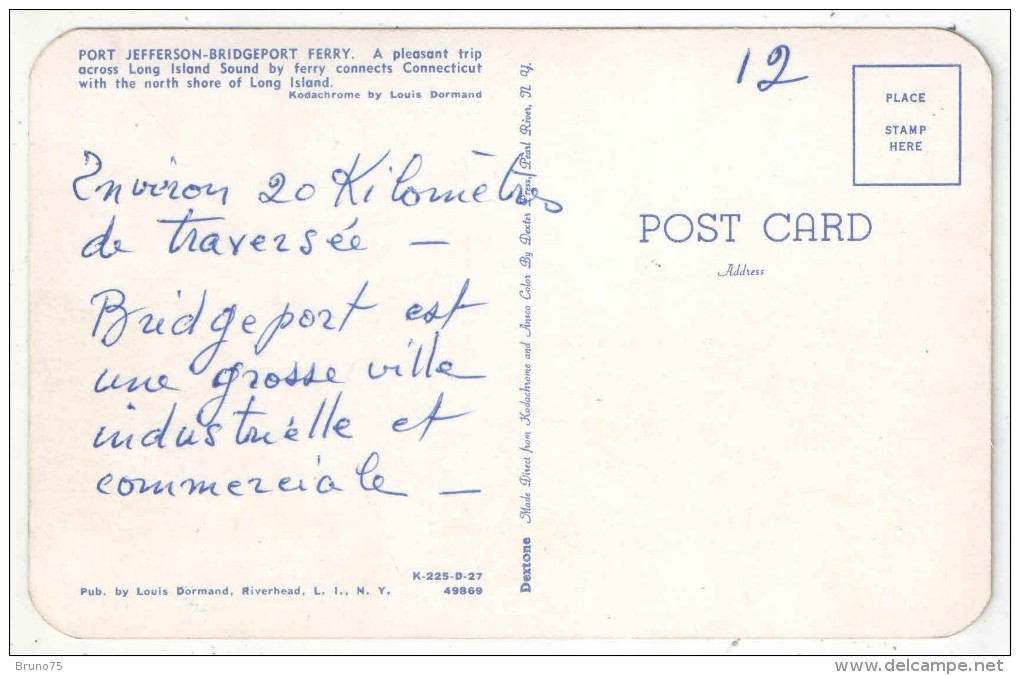 PORT JEFFERSON-BRIDGEPORT FERRY. A pleasant trip
across Long Island Sound by ferry connects Connecticut
with the north shore of Long Island.
Kodachrome by Louis Dormand
Environ 20 Kilomètres
de traversée —
Bridgeport est
une grosse ville
industrielle et
commerciale —
K-225-D-27
Pub. by Louis Dormand, Riverhead, L. I., N. Y. 49869
Dextone Made Direct from Kodachrome and Ansco Color By Dexter Press, Pearl River, N. Y.
12
PLACE
STAMP
HERE
POST CARD
Address
Bruno75
www.delcampe.net